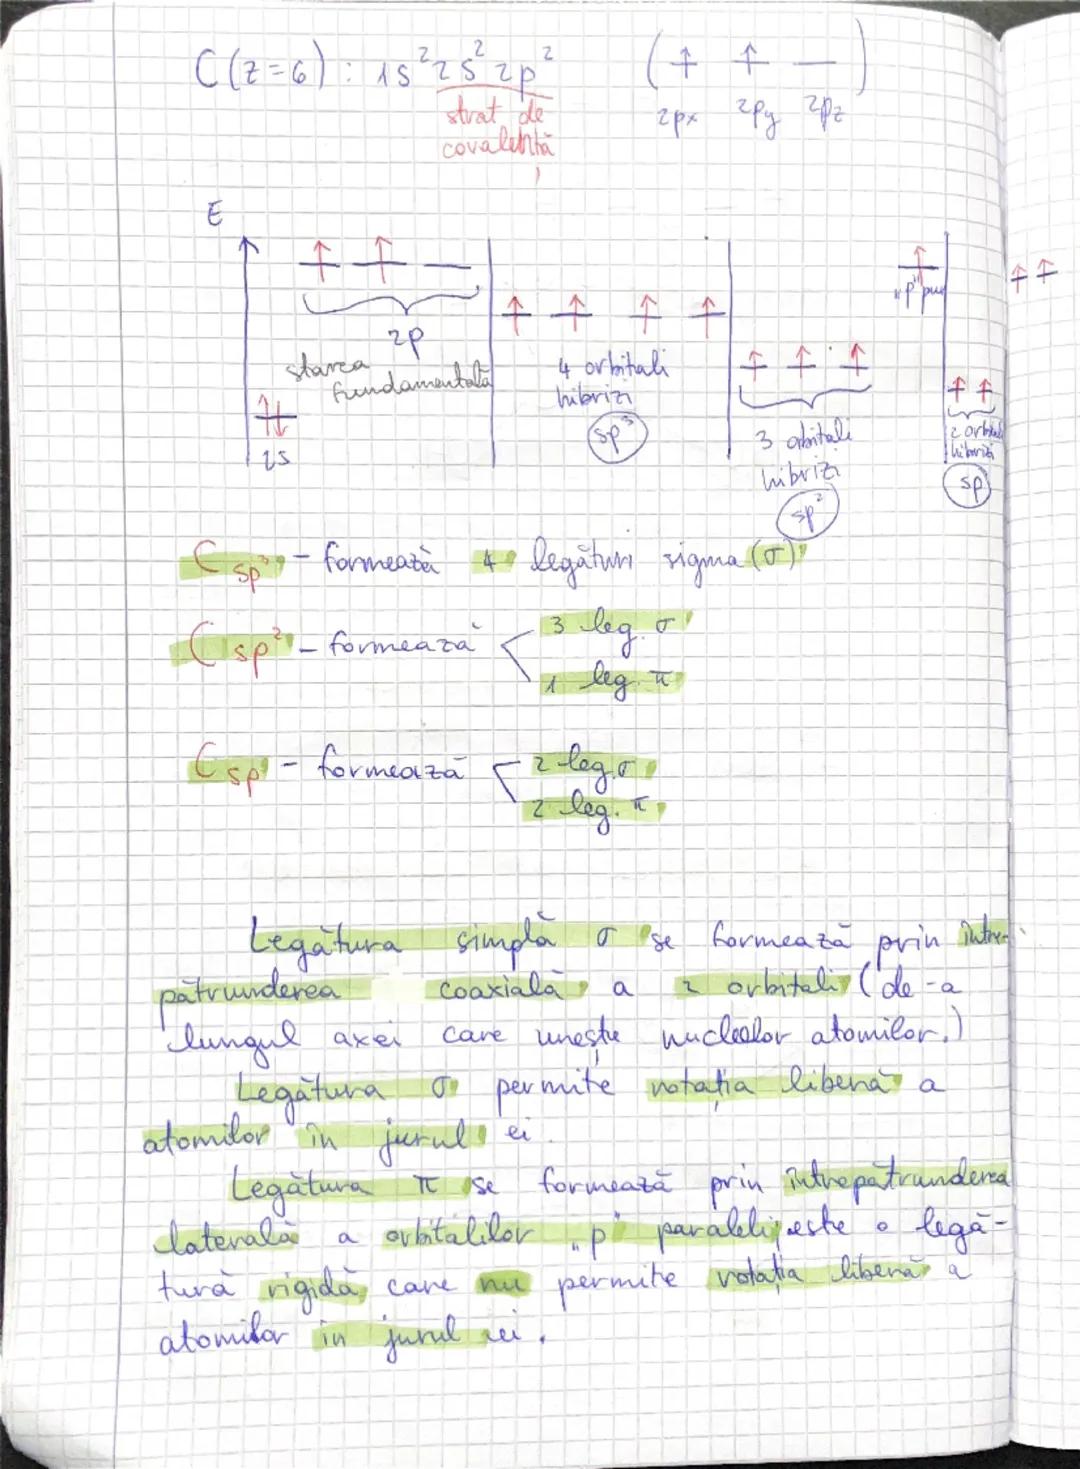 C (z=6) : 1s² 2s² 2p² (↑ ↑ —)
strat de 2px 2py 2pz
covalență
E
2p
starea
fundamentală
2s
4 orbitali
hibrizi
sp³
3 orbitali
hibrizi
sp²
"p" pur
2 orbitali
hibrizi
sp
C sp³ - formează 4 legături sigma (σ)
C sp² - formează 3 leg. σ
1 leg. π
C sp - formează 2 leg. σ
2 leg. π
Legătura simplă σ se formează prin între-
pătrunderea coaxială a 2 orbitali (de-a
lungul axei care unește nucleelor atomilor.)
Legătura σ permite rotația liberă a
atomilor în jurul ei.
Legătura π se formează prin întrepătrunderea
laterală a orbitalilor "p" paraleli; este o legă-
tură rigidă care nu permite rotația liberă a
atomilor în jurul ei.